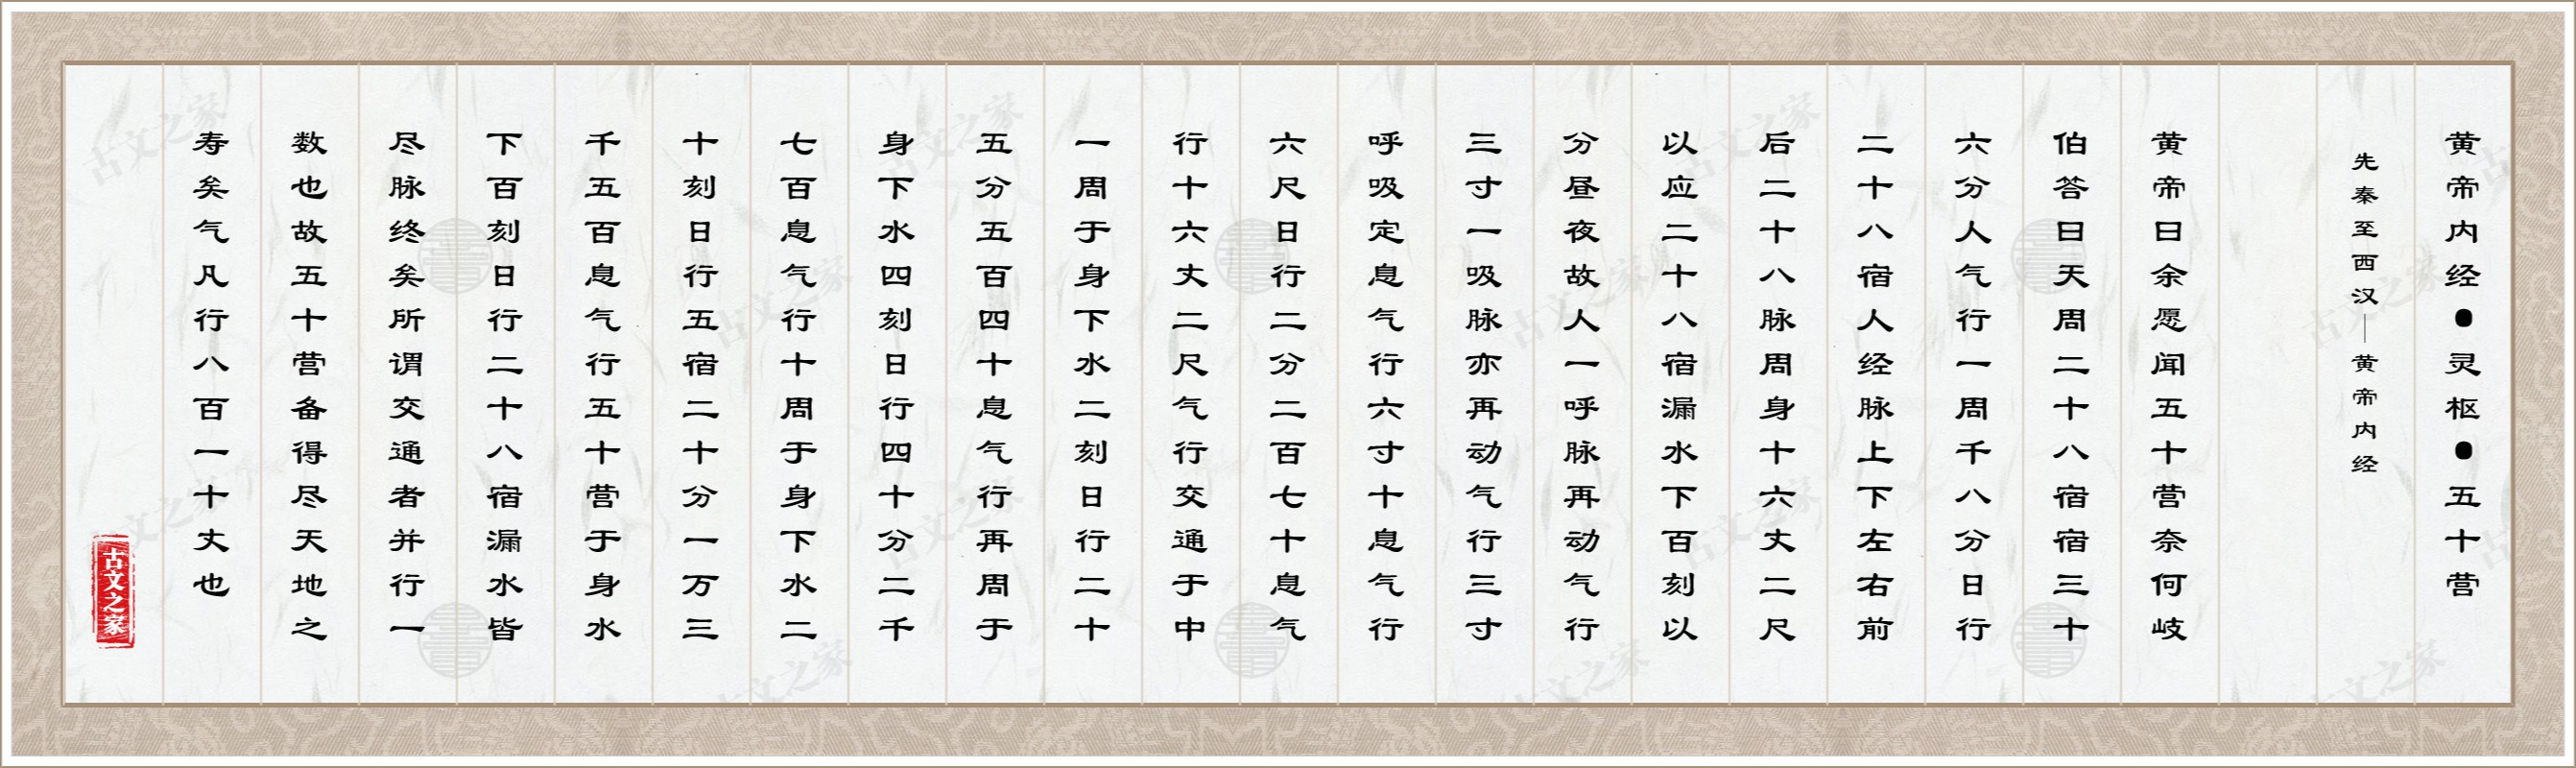 黄帝内经●灵枢●五十营
先秦至西汉—黄帝内经
黄帝曰余愿闻五十营奈何岐
伯答曰天周二十八宿宿三十
六分人气行一周千八分日行
二十八宿人经脉上下左右前
后二十八脉周身十六丈二尺
以应二十八宿漏水下百刻以
分昼夜故人一呼脉再动气行
三寸一吸脉亦再动气行三寸
呼吸定息气行六寸十息气行
六尺日行二分二百七十息气
行十六丈二尺气行交通于中
一周于身下水二刻日行二十
五分五百四十息气行再周于
身下水四刻日行四十分二千
七百息气行十周于身下水二
十刻日行五宿二十分一万三
千五百息气行五十营于身水
下百刻日行二十八宿漏水皆
尽脉终矣所谓交通者并行一
数也故五十营备得尽天地之
寿矣气凡行八百一十丈也
古文之家